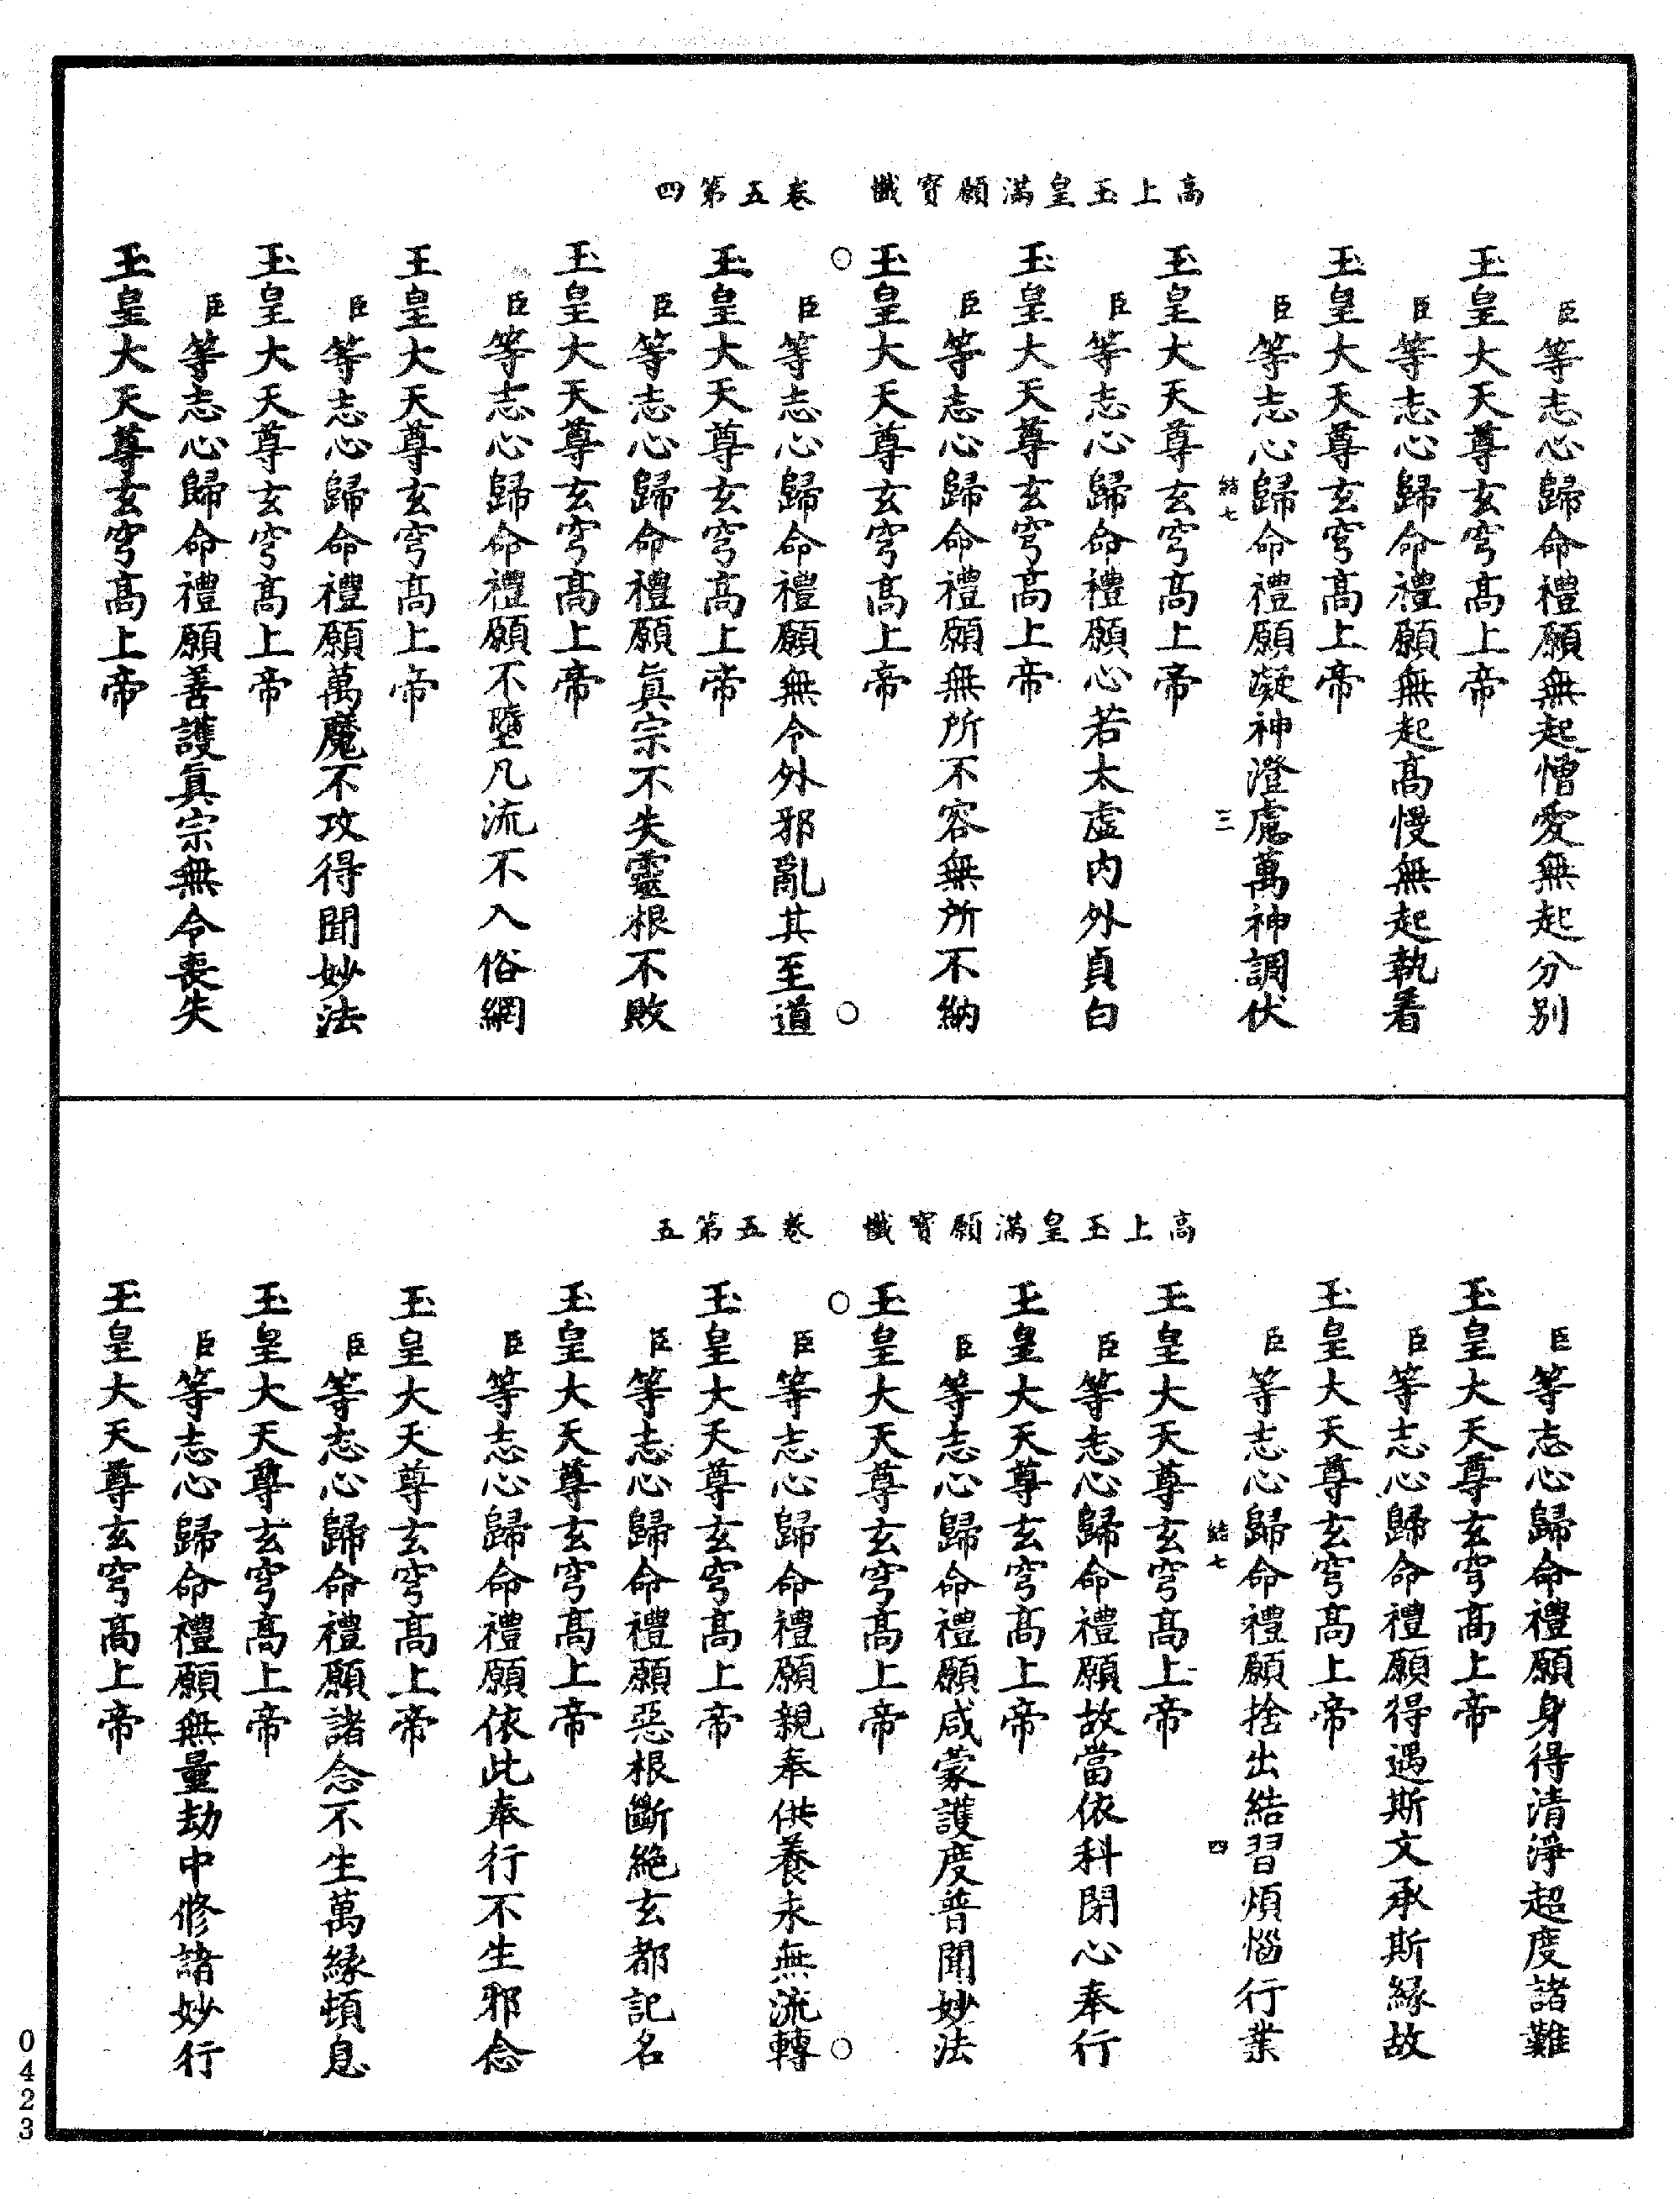 高上玉皇滿願寶懺　卷五第四
臣等志心歸命禮願無起憎愛無起分別
玉皇大天尊玄穹高上帝
臣等志心歸命禮願無起高慢無起執着
玉皇大天尊玄穹高上帝
臣等志心歸命禮願凝神澄慮萬神調伏
結七　三
玉皇大天尊玄穹高上帝
臣等志心歸命禮願心若太虛內外貞白
玉皇大天尊玄穹高上帝
臣等志心歸命禮願無所不容無所不納
玉皇大天尊玄穹高上帝
臣等志心歸命禮願無令外邪亂其至道
玉皇大天尊玄穹高上帝
臣等志心歸命禮願眞宗不失靈根不敗
玉皇大天尊玄穹高上帝
臣等志心歸命禮願不墮凡流不入俗網
玉皇大天尊玄穹高上帝
臣等志心歸命禮願萬魔不攻得聞妙法
玉皇大天尊玄穹高上帝
臣等志心歸命禮願善護眞宗無令喪失
玉皇大天尊玄穹高上帝
高上玉皇滿願寶懺　卷五第五
臣等志心歸命禮願身得清淨超度諸難
玉皇大天尊玄穹高上帝
臣等志心歸命禮願得遇斯文承斯緣故
玉皇大天尊玄穹高上帝
臣等志心歸命禮願捨出結習煩惱行業
結七　四
玉皇大天尊玄穹高上帝
臣等志心歸命禮願故當依科閉心奉行
玉皇大天尊玄穹高上帝
臣等志心歸命禮願咸蒙護度普聞妙法
玉皇大天尊玄穹高上帝
臣等志心歸命禮願親奉供養永無流轉
玉皇大天尊玄穹高上帝
臣等志心歸命禮願惡根斷絕玄都記名
玉皇大天尊玄穹高上帝
臣等志心歸命禮願依此奉行不生邪念
玉皇大天尊玄穹高上帝
臣等志心歸命禮願諸念不生萬緣頓息
玉皇大天尊玄穹高上帝
臣等志心歸命禮願無量劫中修諸妙行
玉皇大天尊玄穹高上帝
0423